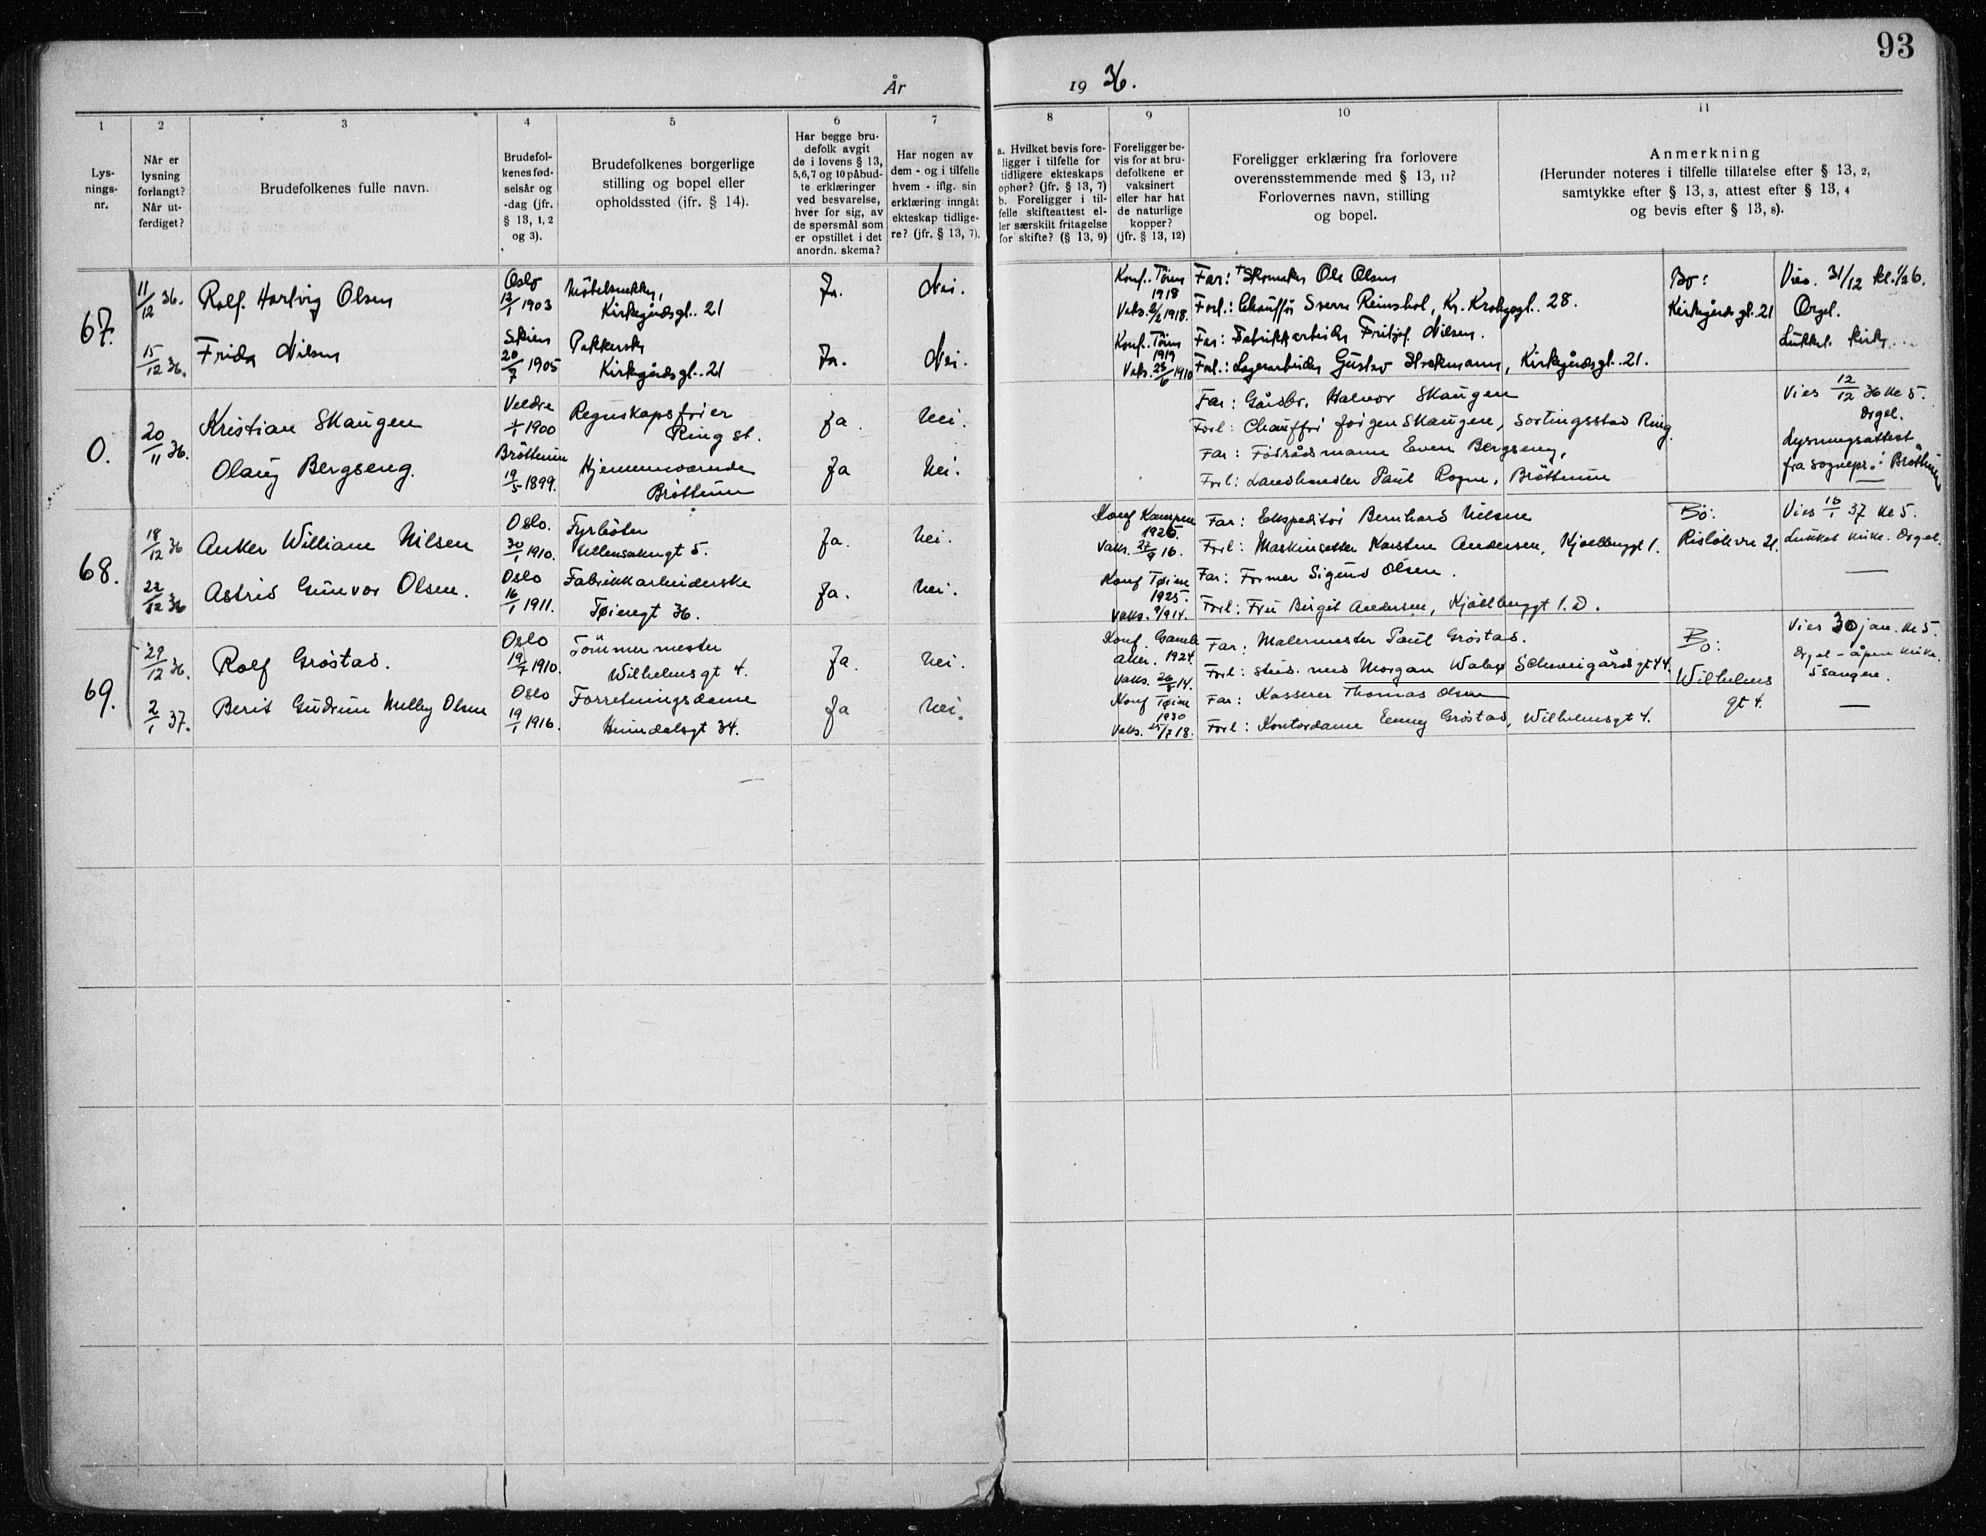 93
År 1936.
1 2 3 4 5 6 7 8 9 10 11
Lys-
nings-
nr.
Når er
lysning
forlangt?
Når ut-
ferdiget?
Brudefolkenes fulle navn.
Brudefol-
kenes fød-
selsår og
-dag (jfr.
§ 13, 1, 2
og 3).
Brudefolkenes borgerlige
stilling og bopel eller
opholdssted (ifr. § 14).
Har begge bru-
defolk avgit
de i lovens § 13,
5,6,7 og 10 påbud-
te erklæringer
ved besvarelse,
hver for sig, av
de spørsmål som
er opstillet i det
anordn. skema?
Har nogen av
dem - og i tilfelle
hvem - iflg. sin
erklæring inngåt
ekteskap tidlige-
re? (jfr. § 13, 7).
a. Hvilket bevis fore-
ligger i tilfelle for
tidligere ekteskaps
ophør? (jfr. § 13, 7)
b. Foreligger i til-
felle skifteattest el-
ler særskilt fritagelse
for skifte? (§ 13, 9)
Foreligger be-
vis for at bru-
defolkene er
vaksinert
eller har hat
de naturlige
kopper?
(jfr. § 13, 12)
Foreligger erklæring fra forlovere
overensstemmende med § 13, 11?
Forlovernes navn, stilling
og bopel.
Anmerkning
(Herunder noteres i tilfelle tillatelse efter § 13, 2,
samtykke efter § 13, 3, attest efter § 13, 4
og bevis efter § 13, 8).
67.
11/12 36.
Rolf Hartvig Olsen
Oslo
13/1 1903
Møbelsnekker,
Kirkegårdsgt. 21
Ja.
Nei.
Konf. Tøien
1918
Vaks. 2/2 1918.
Far: † Skomaker Ole Olsen
Forl.: Chauffør Sverre Reinshol, Kr. Krohgsgt. 28.
Bo:
Kirkegårdsgt. 21
Vies. 31/12 kl. 1/2 6.
Orgel.
Lukket kirke
15/12 36.
Frida Nilsen
Skien
20/7 1905
Pakkerske
Kirkegårdsgt. 21
Ja.
Nei.
Konf. Tøien
1919
Vaks. 23/6 1910
Far: Fabrikkarbeider Fritjof Nilsen.
Forl.: Lagerarbeider Gustav Strokmann, Kirkegårdsgt. 21.
0.
20/11 36.
Kristian Skaugen
Veldre
1/1 1900
Regnskapsfører
Ring st.
Ja.
Nei.
Far: Gårdbr. Halvor Skaugen
Forl: Chauffør Jørgen Skaugen, Sortingsstad Ring.
Vies 12/12 36 kl 5.
Orgel.
Lysningsattest
fra sognepr. i Brøttum
Olaug Bergseng.
Brøttum
19/5 1899.
Hjemmeværende
Brøttum
Ja
Nei.
Far: Fødrådsmann Even Bergseng,
Forl: Landhandler Paul Rogne, Brøttum
68.
18/12 36
Anker William Nilsen
Oslo.
30/1 1910.
Fyrbøter
Ullensakergt 5.
Ja.
Nei.
Konf Kampen
1925.
Vaks. 27/9 16.
Far: Ekspeditør Bernhard Nilsen
Forl: Maskinsetter Karsten Andersen, Kjølberggt 1.
Bo:
Risløkvn 21.
Vies 16/1 37 kl 5.
Lukket kirke. Orgel.
22/12 36
Astrid Gunvor Olsen.
Oslo
16/1 1911.
Fabrikkarbeiderske
Tøiengt 36.
Ja.
Nei.
Konf Tøien
1925.
Vaks. 9/9 14.
Far: Former Sigurd Olsen.
Forl: Fru Birgit Andersen, Kjølberggt 1. D.
69.
29/12 36.
Rolf Grøstad.
Oslo
19/7 1910.
Tømmermester
Wilhelmsgt 4.
Ja.
Nei.
Konf Gamle
aker. 1924.
Vaks. 26/8 14.
Far: Malermester Paul Grøstad.
Forl: stud. med Morgan Schweigårdsgt 44.
Bo:
Wilhelms
gt 4.
Vies 30 jan. kl 5.
Orgel - åpen kirke.
5 sangere.
2/1 37.
Berit Gudrun Melby Olsen
Oslo
19/1 1916.
Forretningsdame
Heimdalsgt 34.
Ja
Nei.
Konf Tøien
1930
Vaks. 25/7 18.
Far: Kasserer Thomas Olsen
Forl: Kontordame Emmy Grøstad, Wilhelmsgt 4.